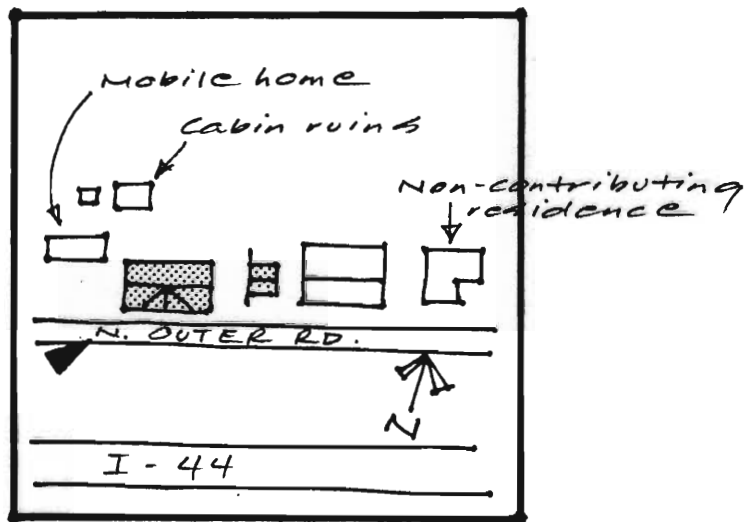 Mobile home
Cabin ruins
Non-contributing
residence
N. OUTER RD.
N
I-44